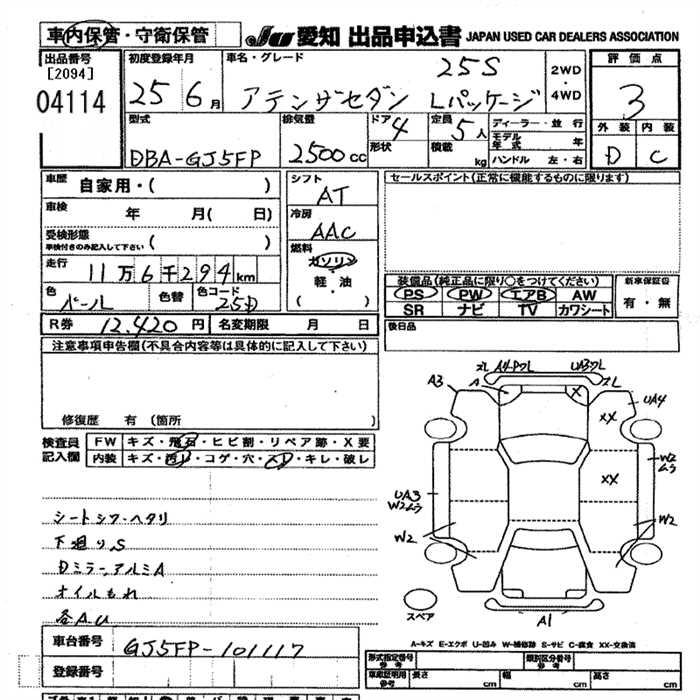 車内保管・守衛保管
JU 愛知 出品申込書 JAPAN USED CAR DEALERS ASSOCIATION
出品番号
[2094]
04114
初度登録年月
25 6月
車名・グレード
25S
アテンザセダン Lパッケージ
2WD
4WD
評価点
3
外装 内装
D C
型式
DBA-GJ5FP
排気量
2500cc
ドア 4
形状
定員 5人
積載 kg
ディーラー・並行
モデル年式 年
ハンドル 左・右
車歴
自家用・( )
車検
年 月( 日)
受検形態
車検付きのみ記入して下さい ( )
走行
11万6千294km
色
パール
色替
色コード
25D
R券 12,420円 名変期限 月 日
シフト
AT
冷房
AAC
燃料
ガソリン
軽・油
( )
セールスポイント(正常に機能するものに限ります)
装備品(純正品に限り○をつけてください)
PS PW エアB AW
SR ナビ TV カワシート
新車保証書
有・無
後日品
注意事項申告欄(不具合内容等は具体的に記入して下さい)
修復歴 有 (箇所
検査員
記入欄
FW キズ・飛石・ヒビ割・リペア跡・X要
内装 キズ・汚れ・コゲ・穴・スレ・キレ・破レ
シートシワ・ヘタリ
下廻りS
Dミラー,アルミA
オイルもれ
各AU
A3
A
ズレ
A4-Pワレ
UA3ワレ
ズレ
X
XX
UA4
XX
W2
ムラ
UA3
W2ムラ
W2
W2
スペア
A1
A-キズ E-エクボ U-凹み W-補修跡 S-サビ C-腐食 XX-交換済
車台番号
GJ5FP-101117
登録番号
形式指定番号
参考
類別区分番号
参考
車庫証明用
参考
長さ cm 幅 cm 高さ cm